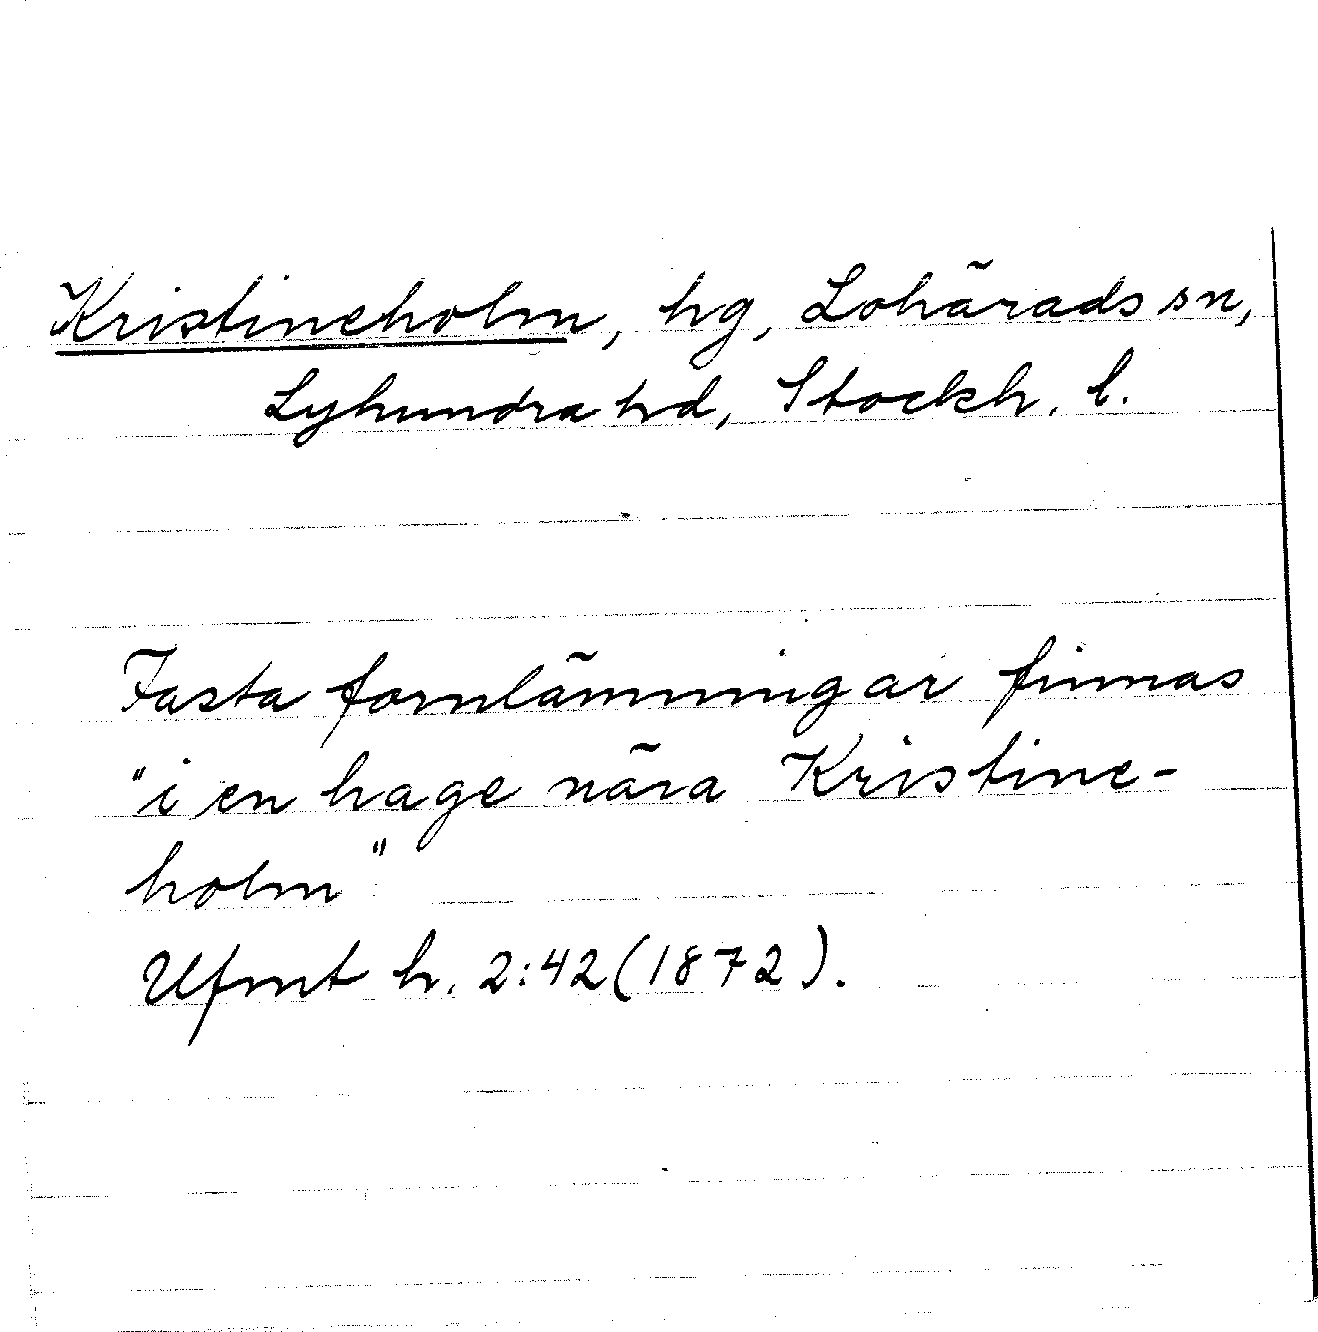 Kristineholm, hg, Lohärads sn,
Lyhundra hd, Stockh. l.
Fasta fornlämningar finnas
"i en hage nära Kristine-
holm"
Ufmt h. 2:42 (1872).